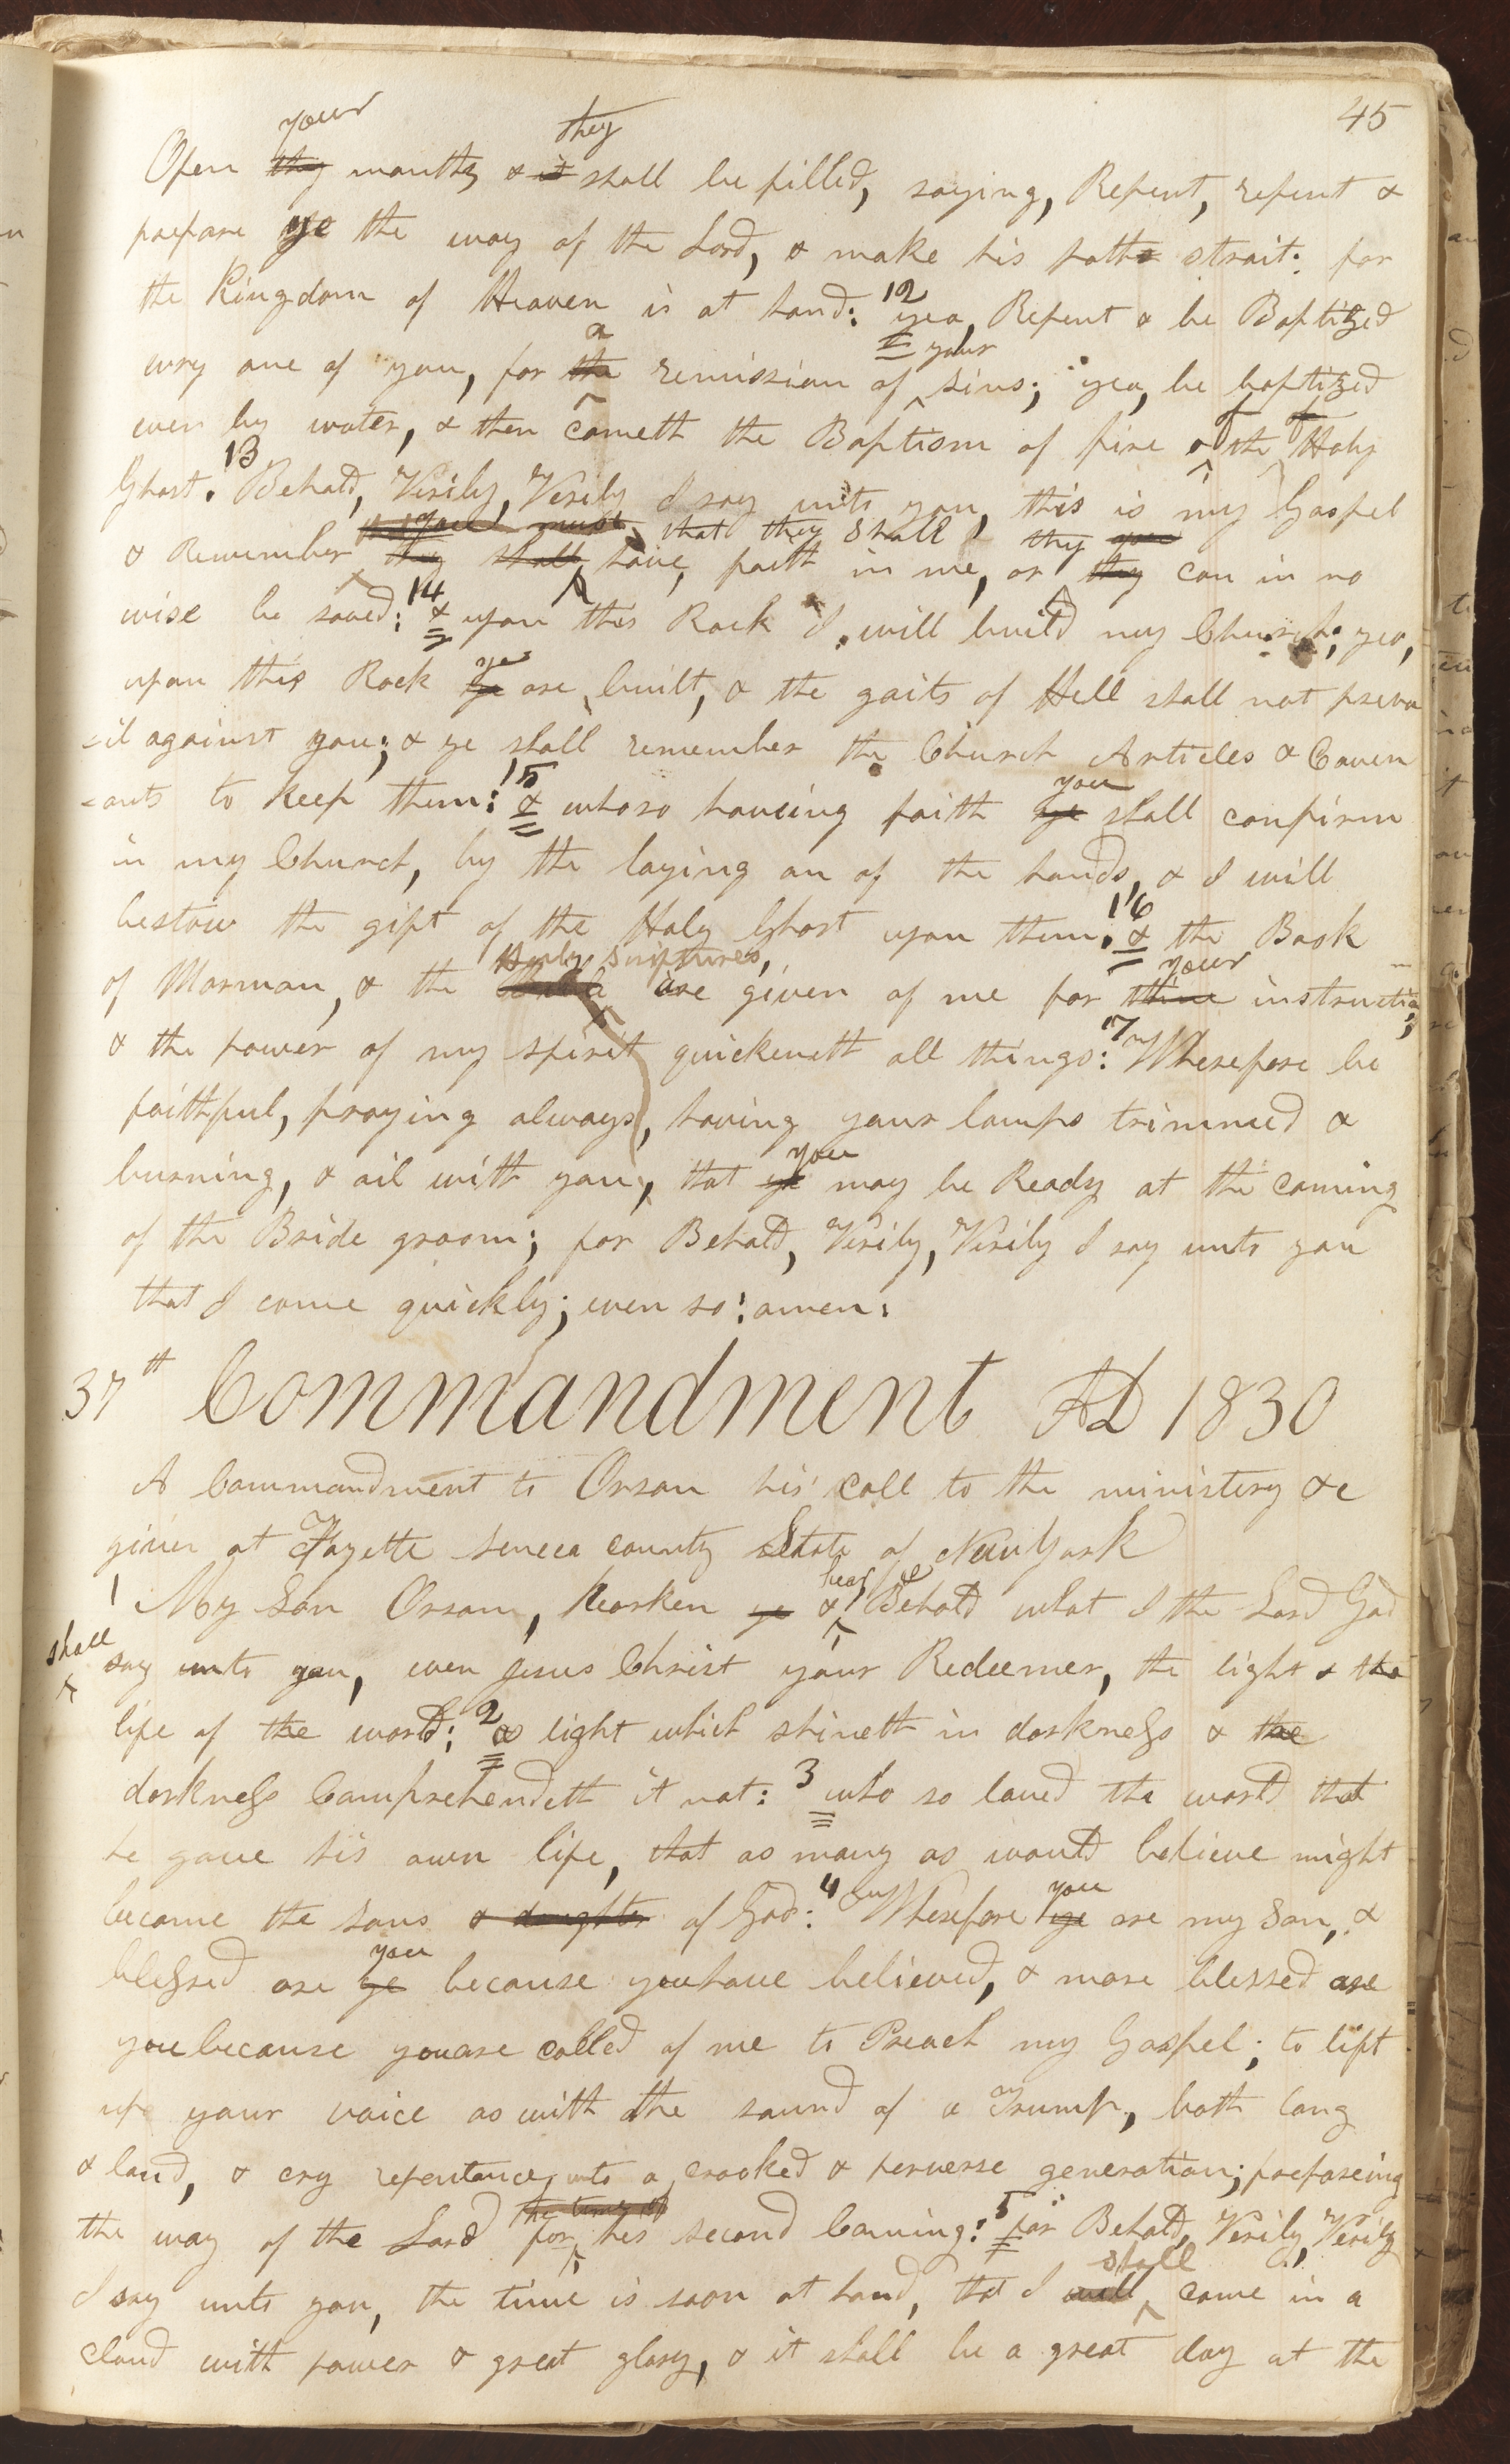 45
your they
Open thy mouths & it shall be filled, saying, Repent, repent &
prepare ye the way of the Lord, & make his paths strait: for
the Kingdom of Heaven is at hand: 12 yea, Repent & be Baptized
a your
evry one of you, for the remission of sins; yea, be baptized
even by water, & then cometh the Baptism of fire & the Holy
Ghost. 13 Behold, Verily, Verily I say unto you, this is my Gospel
you must that they shall they you
& Remember they shall have faith in me, or they can in no
wise be saved: 14 & upon this Rock I will build my Church; yea,
ye
upon this Rock ye are built, & the gaits of Hell shall not preva
=il against you; & ye shall remember the Church Articles & Coven
=ants to keep them: 15 & whoso having faith ye shall confirm
you
in my Church, by the laying on of the hands, & I will
bestow the gift of the Holy Ghost upon them: 16 & the Book
Holy Scriptures, your
of Mormon, & the Bible are given of me for thine instruction;
& the power of my spirit quickeneth all things: 17 Wherefore be
faithful, praying always, having your lamps trimmed &
you
burning, & oil with you, that ye may be Ready at the coming
of the Bride groom; for Behold, Verily, Verily I say unto you
that I come quickly; even so: amen:
37th Commandment AD 1830
A Commandment to Orson his call to the ministery &c
given at Fayette Seneca county State of New York
hear ye
1 My Son Orson, hearken ye & Behold what I the Lord God
shall
say unto you, even Jesus Christ your Redeemer, the light & the
life of the world: 2 a light which shineth in darkness & the
darkness Comprehendeth it not: 3 who so loved the world that
he gave his own life, that as many as would believe might
you
become the sons & daughters of God: 4 Wherefore ye are my Son, &
you
blessed are ye because you have believed, & more blessed are
you because you are called of me to Preach my Gospel; to lift
up your voice as with the sound of a Trump, both long
& loud, & cry repentance unto a crooked & perverse generation; prepareing
the time of
the way of the Lord for his second Comeing: 5 for Behold, Verily, Verily
shall
I say unto you, the time is soon at hand, that I will come in a
cloud with power & great glory, & it shall be a great day at the